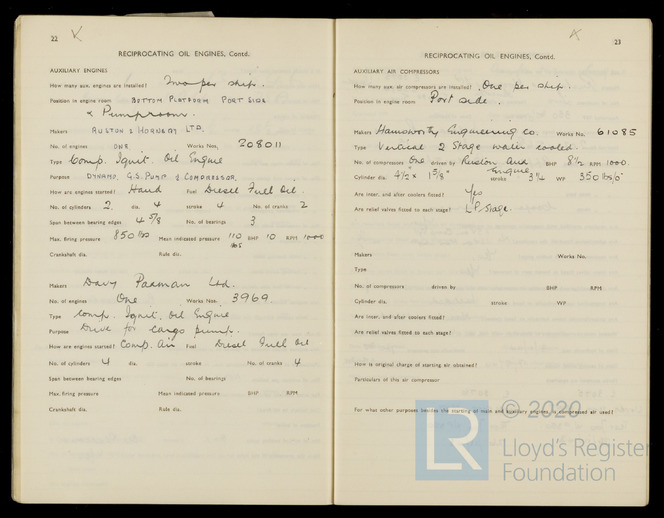 22
RECIPROCATING OIL ENGINES, Contd.
AUXILIARY ENGINES
How many aux. engines are installed? Two per ship.
Position in engine room BOTTOM PLATFORM PORT SIDE
& Pumproom.
Makers RUSTON & HORNSBY LTD.
No. of engines ONE Works Nos. 208011
Type Comp. Ignit. Oil Engine
Purpose DYNAMO, G.S. PUMP & COMPRESSOR.
How are engines started? Hand Fuel Diesel Fuel Oil.
No. of cylinders 2. dia. 4 stroke 4 No. of cranks 2
Span between bearing edges 4 5/8 No. of bearings 3
Max. firing pressure 850 lbs Mean indicated pressure 110 lbs BHP 10 RPM 1000
Crankshaft dia. Rule dia.
Makers Davy Paxman Ltd.
No. of engines One Works Nos. 3969.
Type Comp. Ignit. Oil Engine
Purpose Drive for cargo pump.
How are engines started? Comp. Air Fuel Diesel Fuel Oil
No. of cylinders 4 dia. stroke No. of cranks 4
Span between bearing edges No. of bearings
Max. firing pressure Mean indicated pressure BHP RPM
Crankshaft dia. Rule dia.
23
RECIPROCATING OIL ENGINES, Contd.
AUXILIARY AIR COMPRESSORS
How many aux. air compressors are installed? One per ship.
Position in engine room Port side.
Makers Hamworthy Engineering Co. Works No. 61085
Type Vertical 2 Stage water cooled.
No. of compressors One driven by Ruston Aux Engine BHP 8½ RPM 1000.
Cylinder dia. 4½" x 1 5/8" stroke 3¼ WP 350 lbs/□"
Are inter. and after coolers fitted? Yes
Are relief valves fitted to each stage? L.P. Stage.
Makers Works No.
Type
No. of compressors driven by BHP RPM
Cylinder dia. stroke WP
Are inter. and after coolers fitted?
Are relief valves fitted to each stage?
How is original charge of starting air obtained?
Particulars of this air compressor
For what other purposes besides the starting of main and auxiliary engines, is compressed air used?
© 2020
LR
Lloyd's Register
Foundation